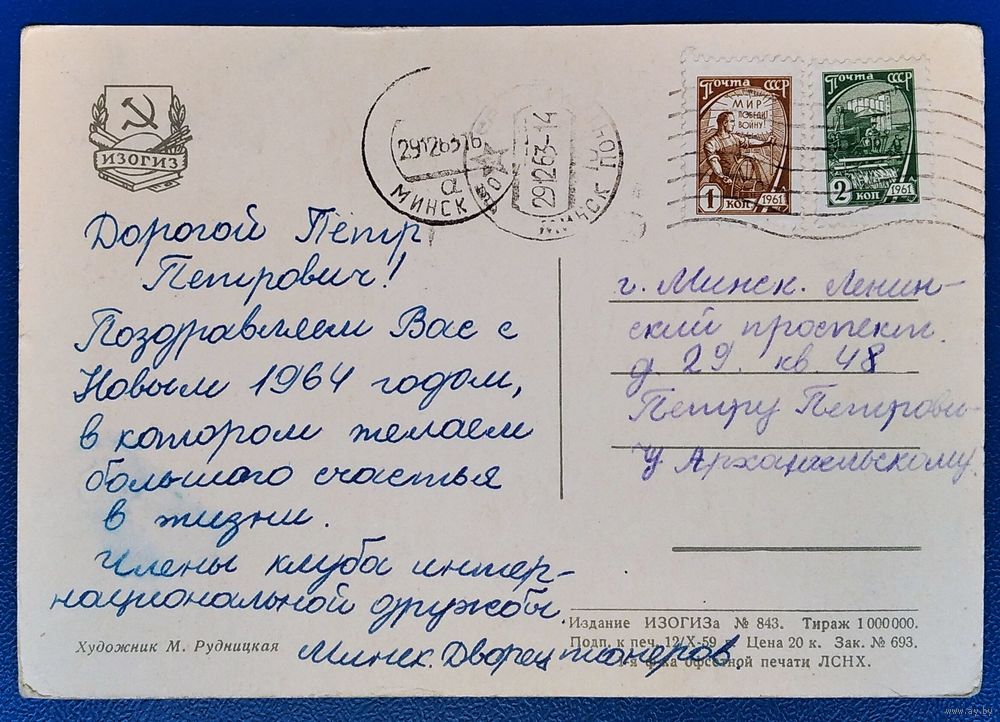 ИЗОГИЗ
291263 16
а
МИНСК
291263-14
МИНСК
Почта СССР
МИР
ПОБЕДИТ
ВОЙНУ!
1 коп 1961
Почта СССР
2 коп 1961
Дорогой Пётр
Петрович!
Поздравляем Вас с
Новым 1964 годом,
в котором желаем
большого счастья
в жизни.
Члены клуба интер-
национальной дружбы.
Минск. Дворец пионеров
г. Минск. Ленин-
ский проспект.
д. 29. кв. 48
Петру Петрови-
чу Архангельскому
Художник М. Рудницкая
Издание ИЗОГИЗа № 843. Тираж 1 000 000.
Подп. к печ. 12/X-59 г. Цена 20 к. Зак. № 693.
1-я ф-ка офсетной печати ЛСНХ.
www.ay.by